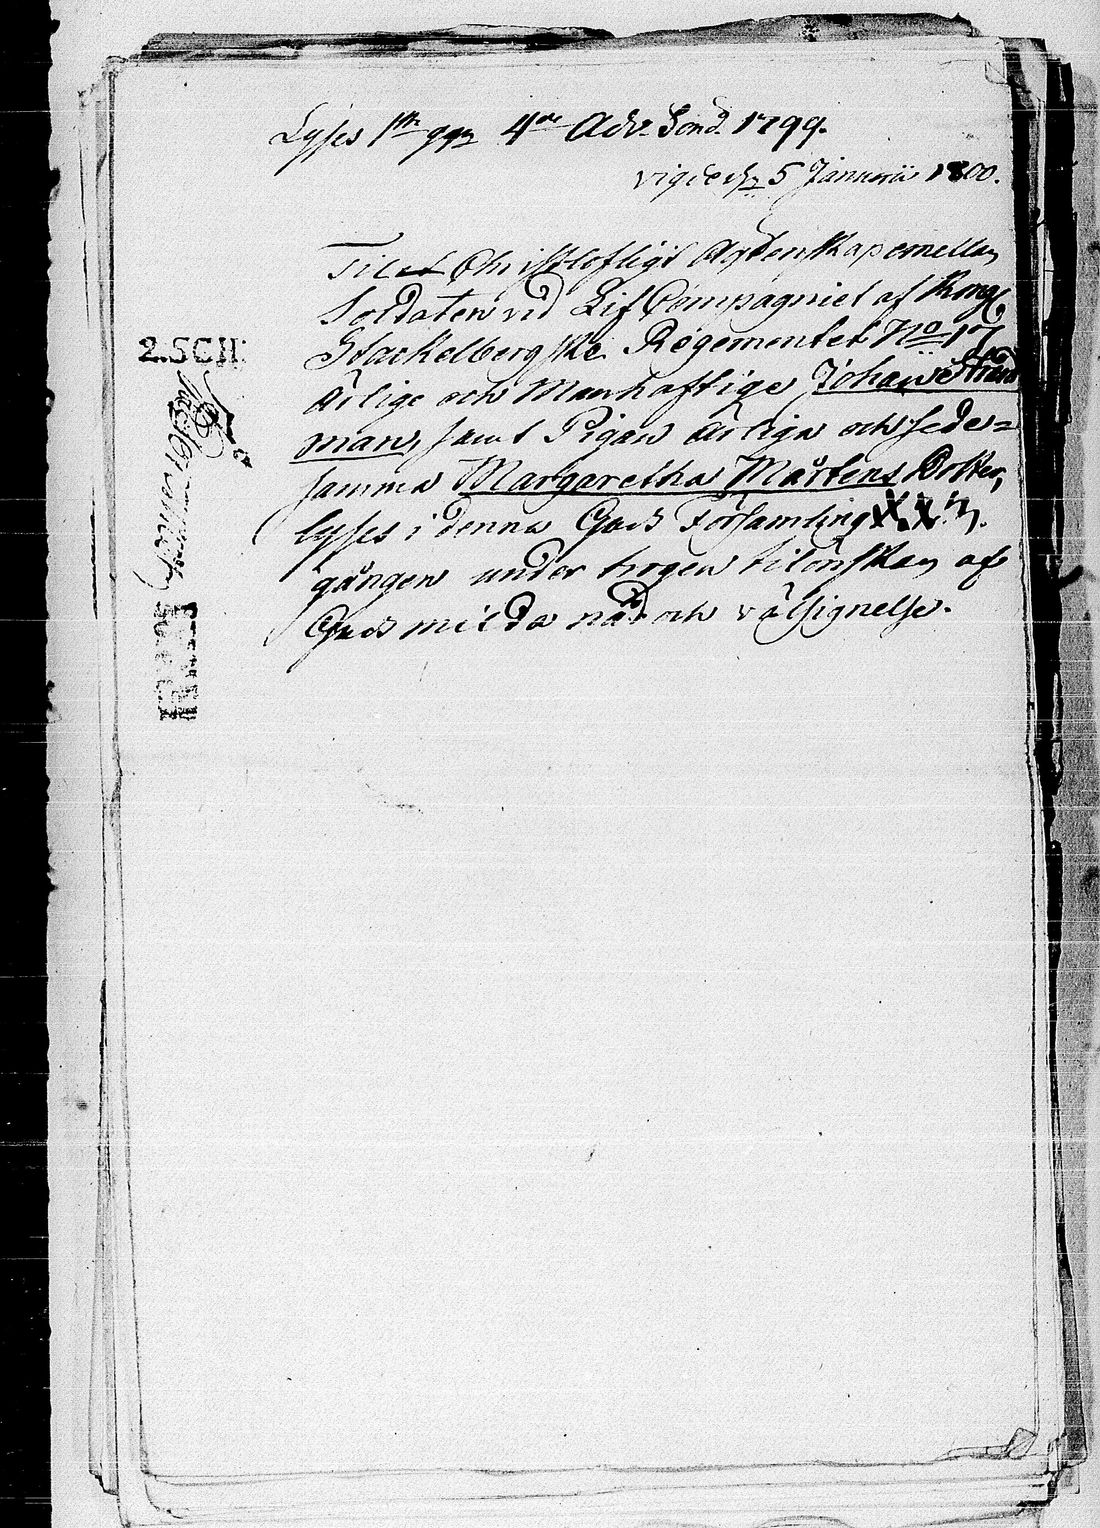 Lyses 1sta ggn 4de Adv. Sönd. 1799.
vigde d. 5 Januarii 1800.
Til et Christlofligt Ägtenskap emellan
Soldaten vid Lif Compagniet af Kongl.
Stackelbergske Regementet No 17
Ärlige och Manhaftige Johan Strand
man, samt Pigan Ärliga och sede=
samma Margaretha Mårtens Dotter,
lyses i denna Guds Församling
gången under trogen tilönskan af
Guds milda nåd och välsignelse.
2.SCH